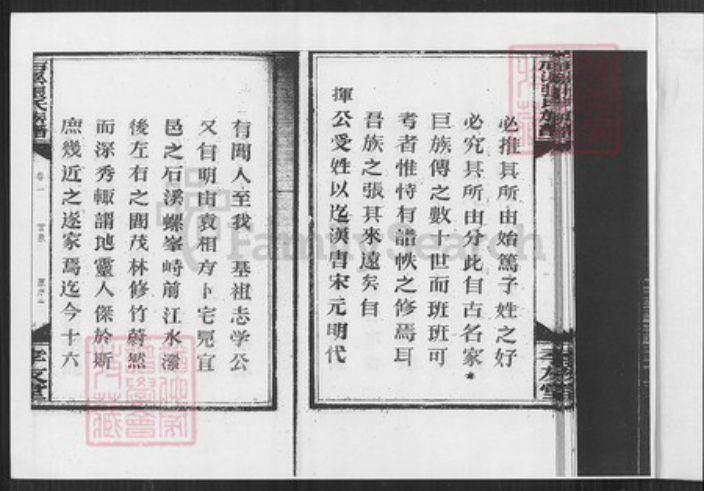 必推其所由始篤子姓之好
必究其所由分此自古名家
巨族傳之數十世而班班可
考者惟恃有譜帙之修焉耳
吾族之張其來遠矣自
揮公受姓以迄漢唐宋元明代
有聞人至我 基祖志学公
又自明由袁相方卜宅冕宜
邑之石溪螺峯峙前江水瀠
後左右之閭茂林修竹蔚然
而深秀輒謂地靈人傑於斯
庶幾近之遂家焉迄今十六
張氏族譜
卷一
孝友堂
FamilySearch